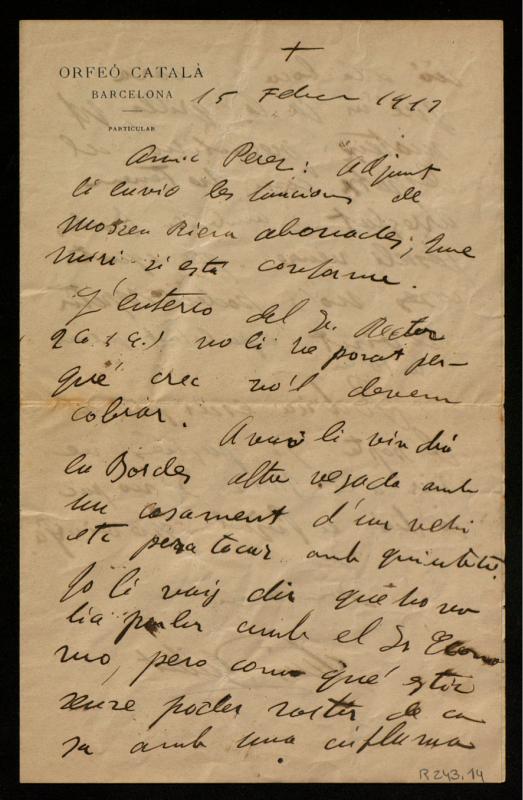 +
ORFEÓ CATALÀ
BARCELONA
PARTICULAR
15 Febrer 1917
Amic Perez: Adjunt
li envio les funcions de
Mossen Riera abonades;
miri si está conforme.
L'enterro del Sr. Rector
no li he posat per-
qué crec no'l devem
cobrar. Avui li vindrá
en Bordes altra vegada amb
un casament d'un vehi
pera tocar amb quintet
Jo li vaig dir que ho vo
lia parlar amb el Sr Econo
mo, pero com qué estic
sense poder sortir de ca
sa amb una inflama
R 243.14